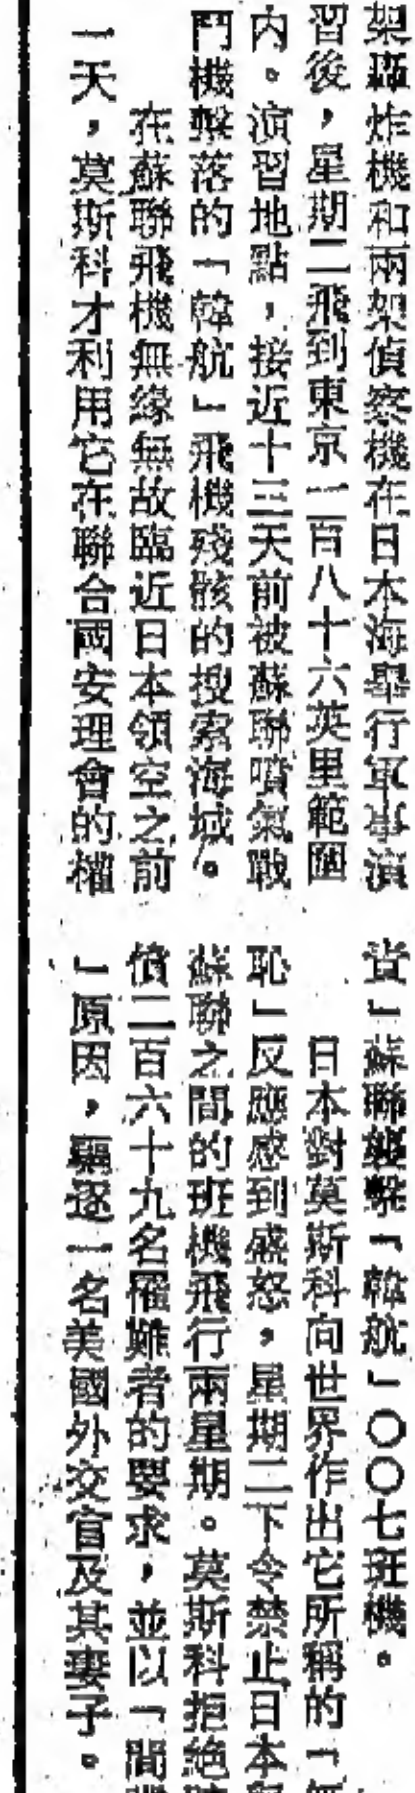 架轟炸機和兩架偵察機在日本海舉行軍事演
習後，星期二飛到東京二百八十六英里範圍
內。演習地點，接近十三天前被蘇聯噴氣戰
鬥機擊落的「韓航」飛機殘骸的搜索海域。
在蘇聯飛機無緣無故臨近日本領空之前
一天，莫斯科才利用它在聯合國安理會的權
責」蘇聯襲擊「韓航」〇〇七班機。
日本對莫斯科向世界作出它所稱的「無
恥」反應感到盛怒，星期二下令禁止日本與
蘇聯之間的班機飛行兩星期。莫斯科拒絕賠
償二百六十九名罹難者的要求，並以「間諜
」原因，驅逐一名美國外交官及其妻子。